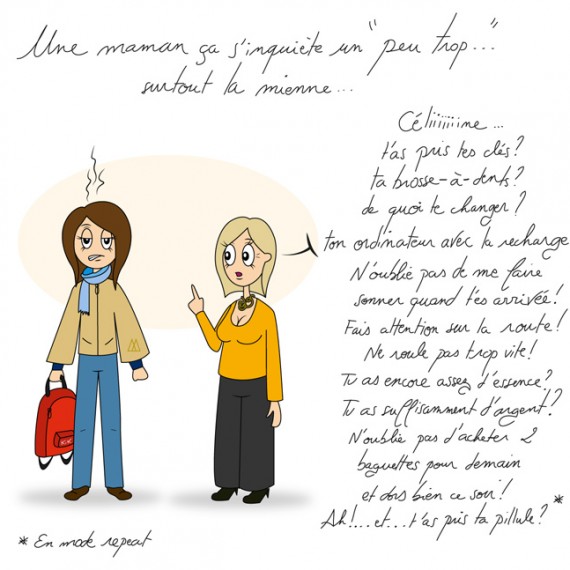 Une maman ça s'inquiète un "peu trop..."
surtout la mienne...
Céliiiiiiine...
t'as pris tes clés?
ta brosse-à-dents?
de quoi te changer?
ton ordinateur avec la recharge
N'oublie pas de me faire
sonner quand t'es arrivée!
Fais attention sur la route!
Ne roule pas trop vite!
Tu as encore assez d'essence?
Tu as suffisamment d'argent?
N'oublie pas d'acheter 2
baguettes pour demain
et dors bien ce soir!
Ah!...et...t'as pris ta pillule? *
* En mode repeat